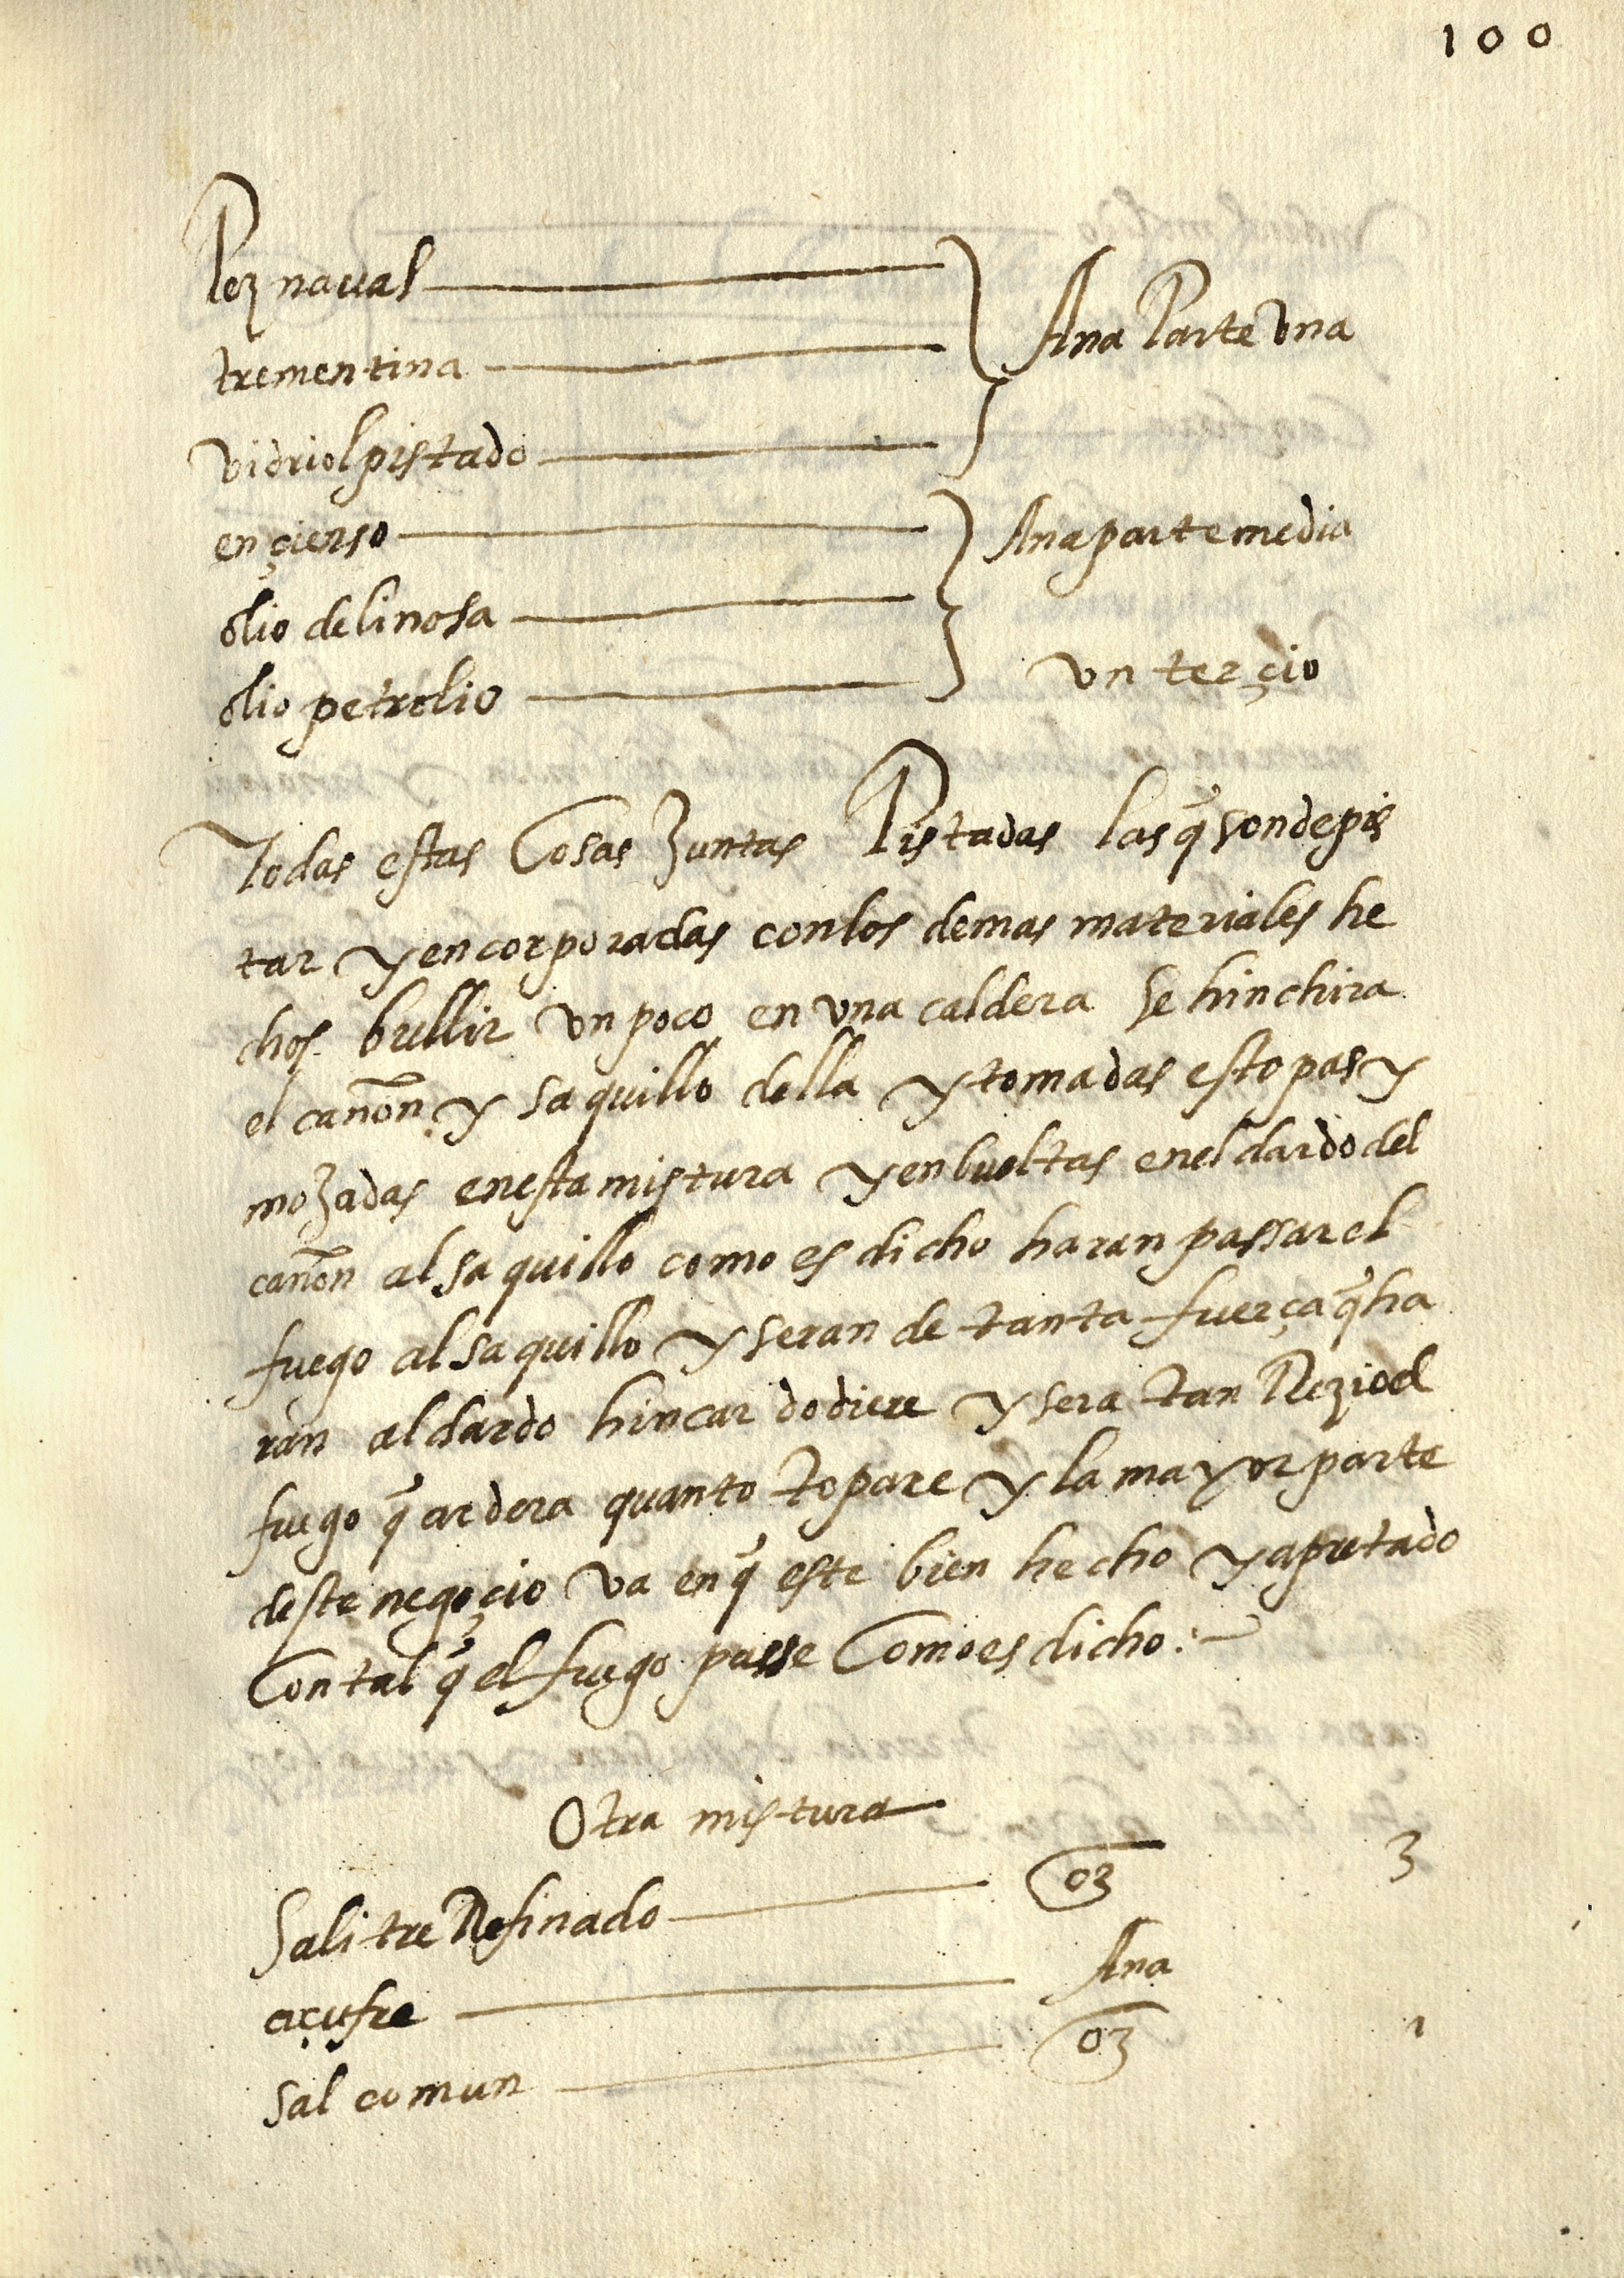 100
Pez naual } Ana Parte vna
trementina
vidriol pistado
ençienso } Ana parte media
olio de linosa
olio petrolio un terçio
Todas estas Cosas Juntas Pistadas las q̃ son de pis
tar y encorporadas con los demas materiales he
chos bullir vn poco en vna caldera se hinchira
el cañon y saquillo della y tomadas estopas y
mojadas en esta mistura y enbueltas en el dardo del
cañon al saquillo como es dicho haran passar el
fuego al saquillo y seran de tanta fuerça q̃ ha
ran al dardo hincar do diere y sera tan Rezio el
fuego q̃ ardera quanto topare y la mayor parte
deste negoçio va en q̃ este bien hecho y apretado
Con tal q̃ el fuego passe Como es dicho:~
Otra mistura
Salitre Refinado 03 3
açufre Ana
Sal comun 03 1